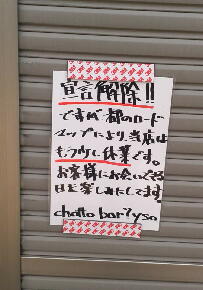 宣言解除!!
ですが都のロード
マップにより当店は
もう少し休業です。
お客様にお会いできる
日を楽しみにしてます